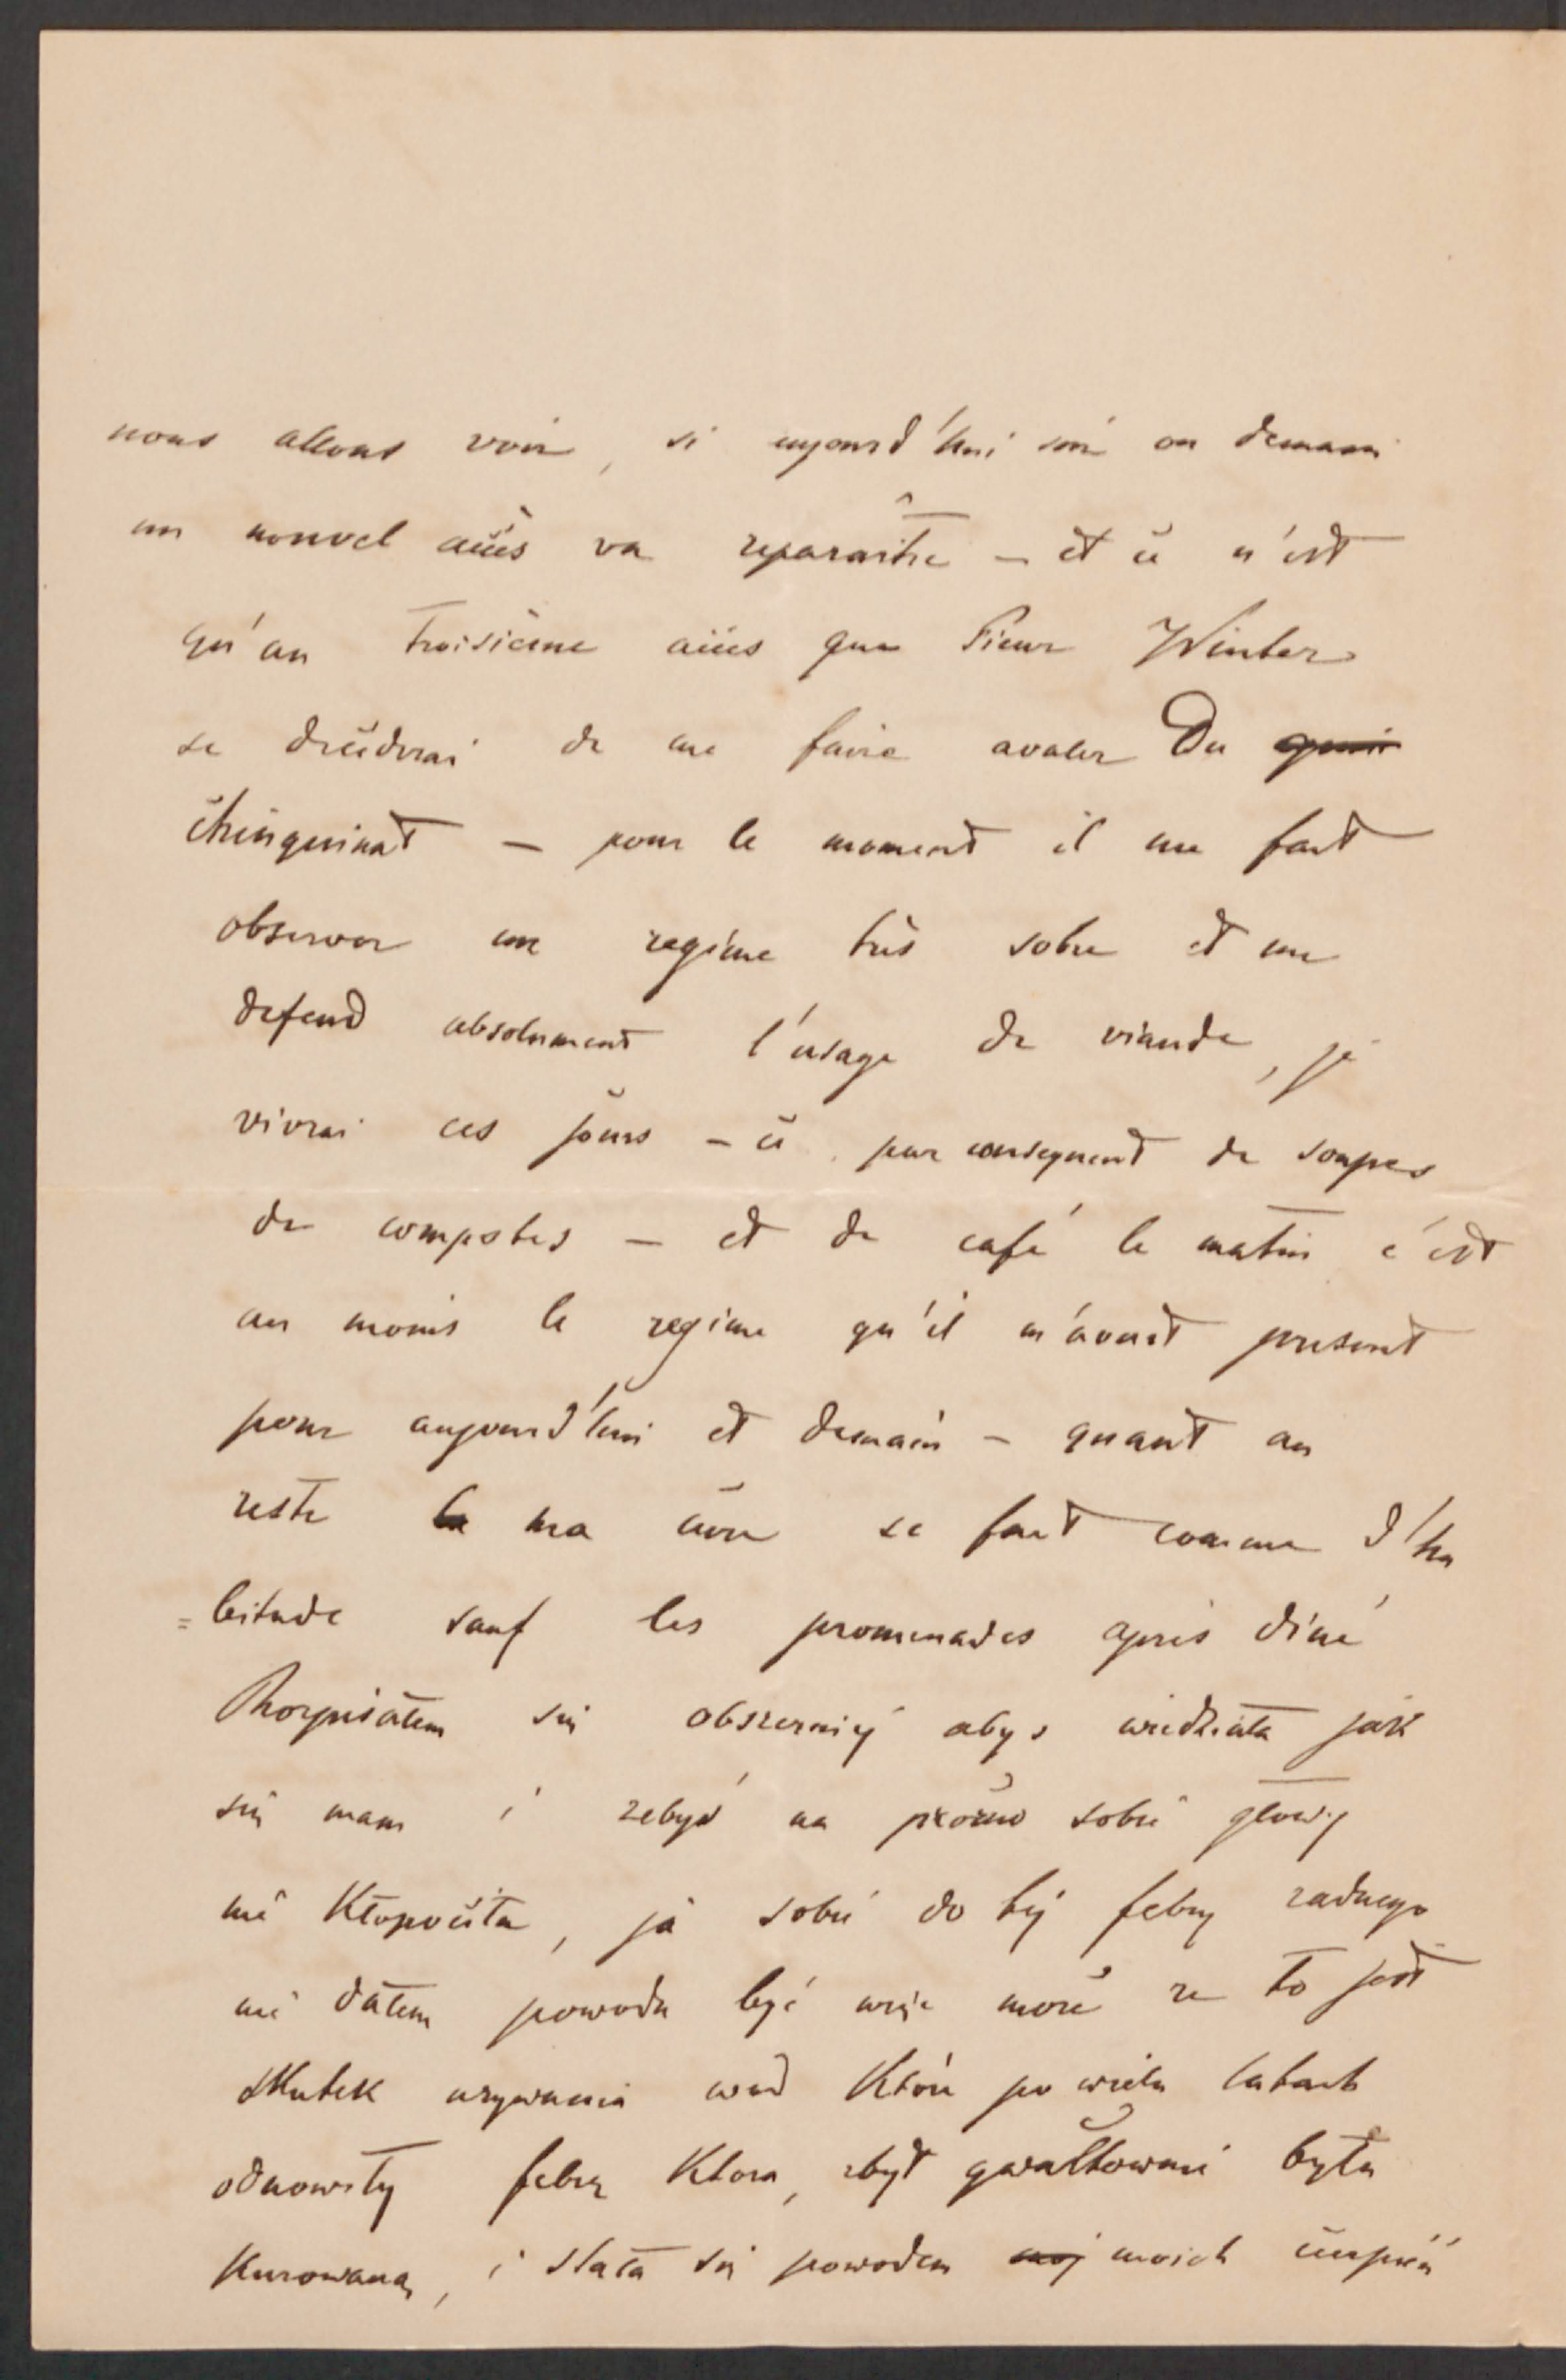 nous allons voir, si aujourd'hui soir ou demain
un nouvel accès va reparaître – et ce n'est
qu'au troisième accès que Sieur Winter
se decidrai de me faire avaler Du
chinquinat – pour le moment il me fait
observer un regime très sobre et me
defend absolument l'usage de viande, je
vivrai ces jours – ci par consequent de soupes
de compotes – et de café le matin c'est
au moins le regime qu'il m'avait prescrit
pour aujourd'hui et demain – quant au
reste ma cure se fait comme d'ha
=bitude sauf les promenades après diné
Rozpisałem się obszerniej abys wiedziała jak
się mam i żebyś na próżno sobie głowy
nie kłopociła, ja sobie do tej febry zadnego
nie dałem powodu być więc może ze to jest
skutek uzywania wod które po wielu latach
odnowiły febrę ktora, zbyt gwałtownie była
kurowaną, i stała się powodem moich cierpień